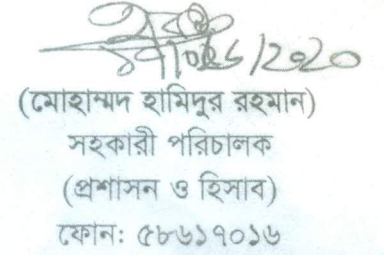 (মোহাম্মদ হামিদুর রহমান)
সহকারী পরিচালক
(প্রশাসন ও হিসাব)
ফোন: ৫৮৬১৭০১৬